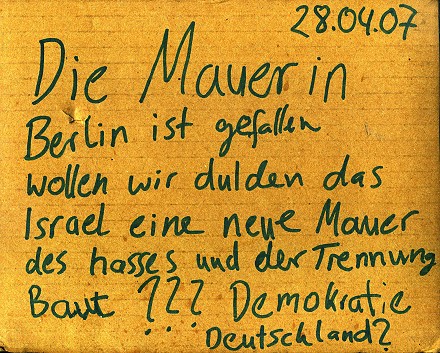 28.04.07
Die Mauer in
Berlin ist gefallen
wollen wir dulden das
Israel eine neue Mauer
des hasses und der Trennung
Baut ??? Demokratie
Deutschland?